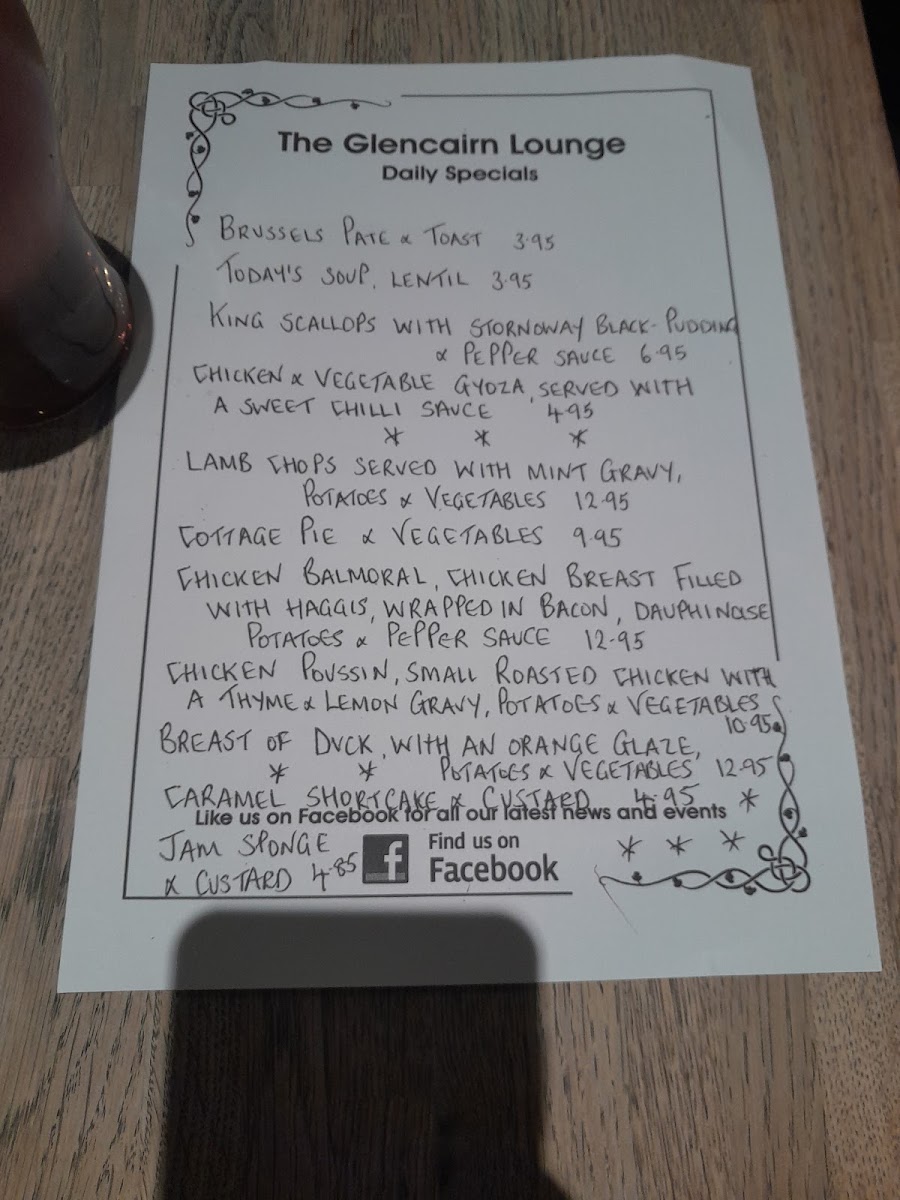 The Glencairn Lounge
Daily Specials
BRUSSELS PATE & TOAST 3.95
TODAY'S SOUP, LENTIL 3.95
KING SCALLOPS WITH STORNOWAY BLACK-PUDDING
& PEPPER SAUCE 6.95
CHICKEN & VEGETABLE GYOZA, SERVED WITH
A SWEET CHILLI SAUCE 4.95
* * *
LAMB CHOPS SERVED WITH MINT GRAVY,
POTATOES & VEGETABLES 12.95
COTTAGE PIE & VEGETABLES 9.95
CHICKEN BALMORAL, CHICKEN BREAST FILLED
WITH HAGGIS, WRAPPED IN BACON, DAUPHINOISE
POTATOES & PEPPER SAUCE 12.95
CHICKEN POUSSIN, SMALL ROASTED CHICKEN WITH
A THYME & LEMON GRAVY, POTATOES & VEGETABLES
10.95
BREAST OF DUCK, WITH AN ORANGE GLAZE,
* * POTATOES & VEGETABLES 12.95
CARAMEL SHORTCAKE & CUSTARD 4.95 *
Like us on Facebook for all our latest news and events
JAM SPONGE
& CUSTARD 4.85
* * *
f Find us on
Facebook